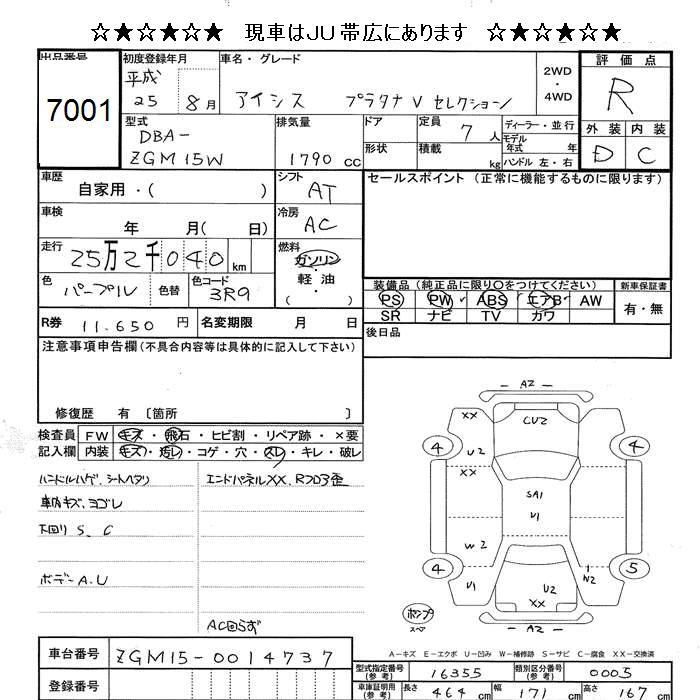 ☆★☆★☆★ 現車はJU帯広にあります ☆★☆★☆★
出品番号 初度登録年月 車名・グレード 2WD・4WD 評価点
7001 平成 25 8月 アイシス プラタナ V セレクション R
型式 排気量 ドア 定員 7人 ディーラー・並行 外装 内装
DBA- ZGM15W 1790 cc 形状 積載 kg モデル年式 年 ハンドル 左・右 D C
車歴 自家用・( ) シフト AT セールスポイント (正常に機能するものに限ります)
車検 年 月( 日) 冷房 AC
走行 25万2千040 km 燃料 ガソリン 軽油 ( )
色 パープル 色替 色コード 3R9
装備品 (純正品に限り○をつけてください) 新車保証書
PS PW ABS エアB AW 有・無
SR ナビ TV カワ
R券 11.650 円 名変期限 月 日 後日品
注意事項申告欄(不具合内容等は具体的に記入して下さい)
修復歴 有 〔箇所 〕
検査員 FW キズ・飛石・ヒビ割・リペア跡・×要
記入欄 内装 キズ・汚レ・コゲ・穴・スレ・キレ・破レ
ハンドルハゲ、シートヘタリ エンドパネルXX、Rフロア歪
車内キズ、ヨゴレ
下回り S、C
ボデーA.U
AC回らず
AZ
XX CU2
4 U2 4
XX
SA1
U1
W2
4 5
U1 U2 W2
XX
ポンプ スペア AZ
A-キズ E-エクボ U-凹み W-補修跡 S-サビ C-腐食 XX-交換済
車台番号 ZGM15-0014737
登録番号
型式指定番号(参考) 16355 類別区分番号(参考) 0005
車庫証明用(参考) 長さ 464 cm 幅 171 cm 高さ 167 cm